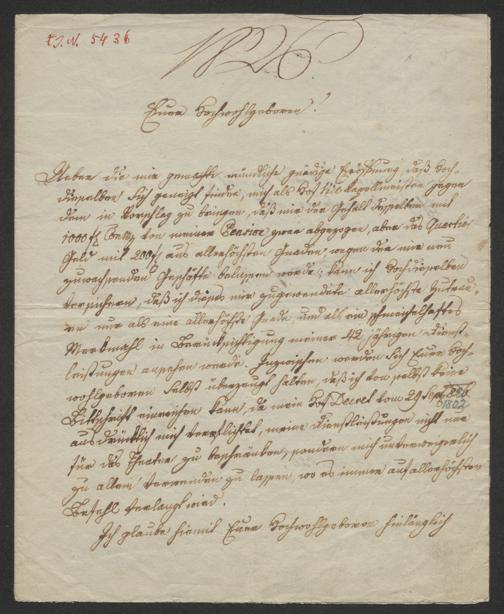 I.N. 5436
1826.
Euer Hochwohlgeboren!
Ueber die mir gemachte mündliche gnädige Eröffnung, daß Hoch-
dieselben sich geneigt finden, mich als Hof Kapellmeister gegen
dem in Vorschlag zu bringen, daß mir der Gehalt desselben mit
1000 fl. CMz von meiner Pension zwar abgezogen, aber das Quartier
Geld mit 200 fl. aus allerhöchsten Gnaden wegen der mir neu
zuwachsenden Geschäfte belassen würde; kann ich Hochdieselben
versichern, daß ich dieses mir zugewendete allerhöchste Zutrau-
en nur als eine allerhöchste Gnade und als ein schmeichelhaftes
Merkmahl in Berücksichtigung meiner 42 jährigen Dienst-
leistungen ansehen würde. Inzwischen werden sich Euer Hoch-
wohlgeboren selbst überzeugt halten, daß ich von selbst keine
Bittschrift einreichen kann, da mein Hof Decret vom 29 Sept.
1802
ausdrücklich mich verpflichtet, meine Dienstleistungen nicht nur
für das Theater zu beschränken, sondern mich unterweigerlich
zu allem verwenden zu lassen, wo es immer auf allerhöchsten
Befehl verlangt wird.
Ich glaube hiemit Euer Hochwohlgeboren hinlänglich